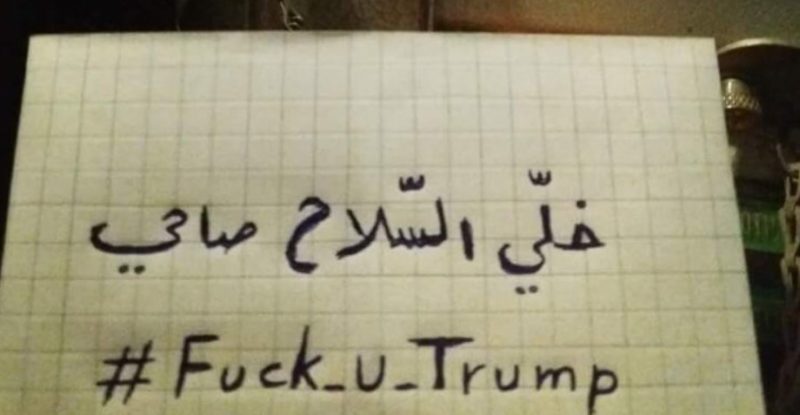 خلّي السّلاح صاحي
#Fuck_u_Trump